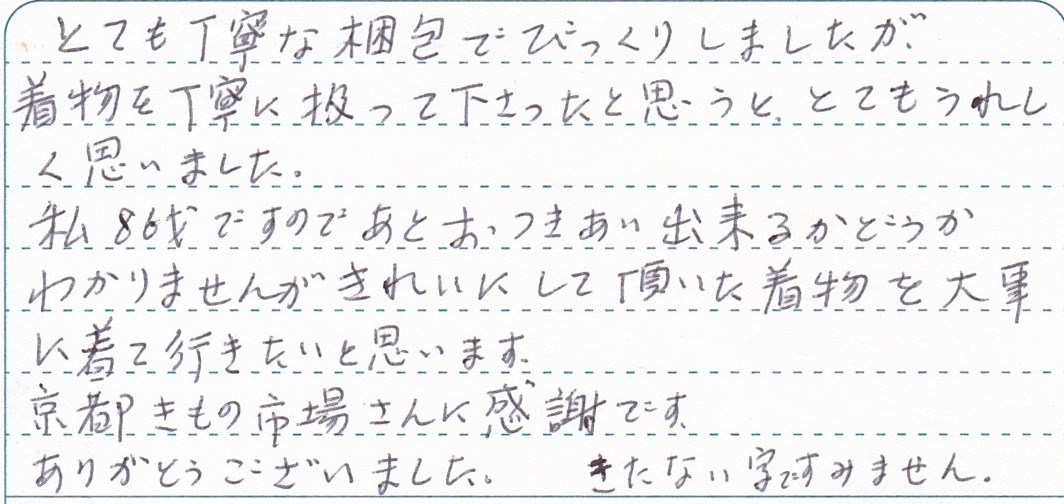 とても丁寧な梱包でびっくりしましたが、
着物を丁寧に扱って下さったと思うと、とてもうれし
く思いました。
私86才ですのであとおつきあい出来るかどうか
わかりませんがきれいにして頂いた着物を大事
に着て行きたいと思います。
京都きもの市場さんに感謝です。
ありがとうございました。 きたない字ですみません。